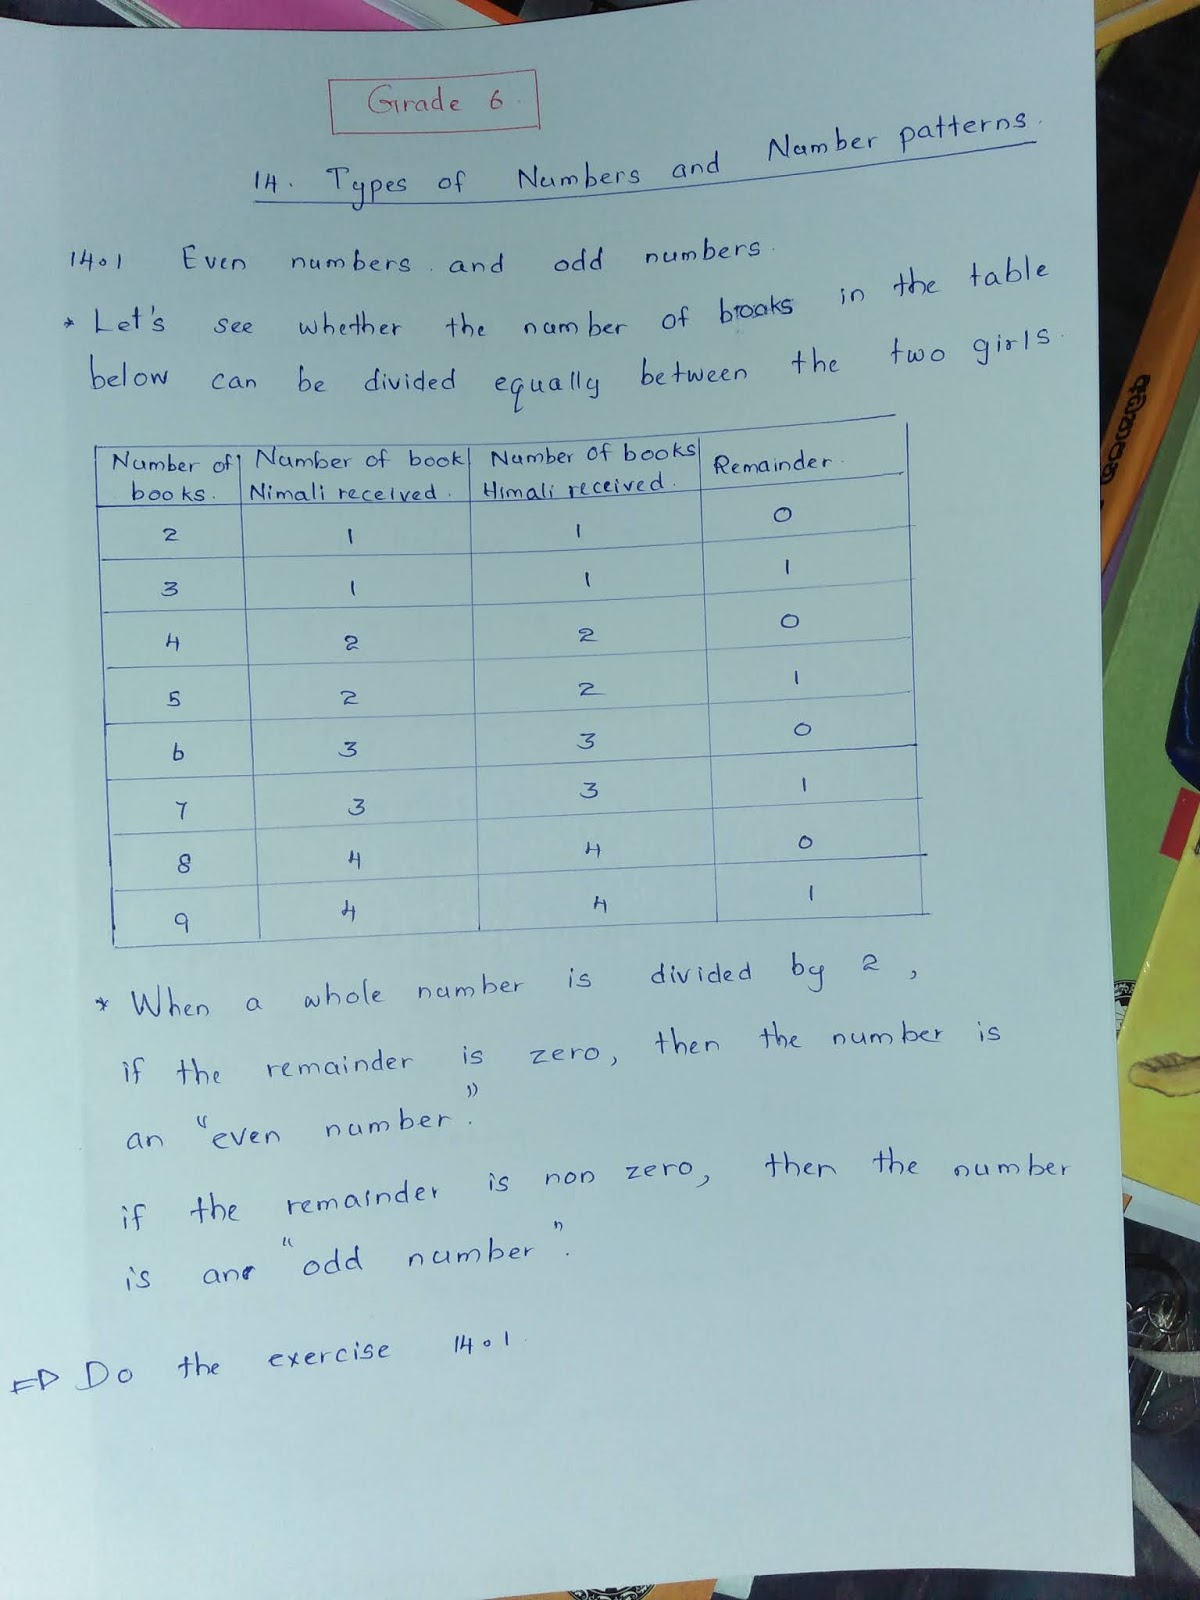 Grade 6.
14. Types of Numbers and Number patterns.
14.1 Even numbers and odd numbers.
* Let's see whether the number of books in the table
below can be divided equally between the two girls.
Number of books. | Number of book Nimali received. | Number of books Himali received. | Remainder.
2 1 1 0
3 1 1 1
4 2 2 0
5 2 2 1
6 3 3 0
7 3 3 1
8 4 4 0
9 4 4 1
* When a whole number is divided by 2,
if the remainder is zero, then the number is
an "even number."
if the remainder is non zero, then the number
is an "odd number".
⇒ Do the exercise 14.1.